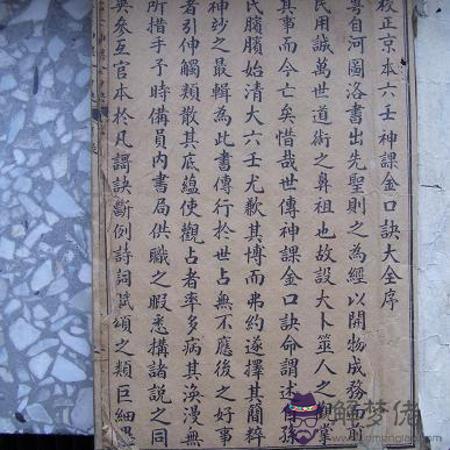 校正京本六壬神課金口訣大全序
粵自河圖洛書出先聖則之為經以開物成務而前
民用誠萬世道術之鼻祖也故設大卜筮人之掌
其事而今亡矣惜哉世傳神課金口訣命謂述作孫
氏臏臏始清大六壬尤歉其博而弗約遂擇其簡粹
神妙之最輯為此書傳行於世占無不應後之好事
者引伸觸類散其底蘊使觀占者率多病其渙漫無
所措手予時備員內書局供職之暇悉搆諸說之同
異參互官本於凡謌訣斷例詩詞賦頌之類巨細
解梦佬
jiemenglao.com